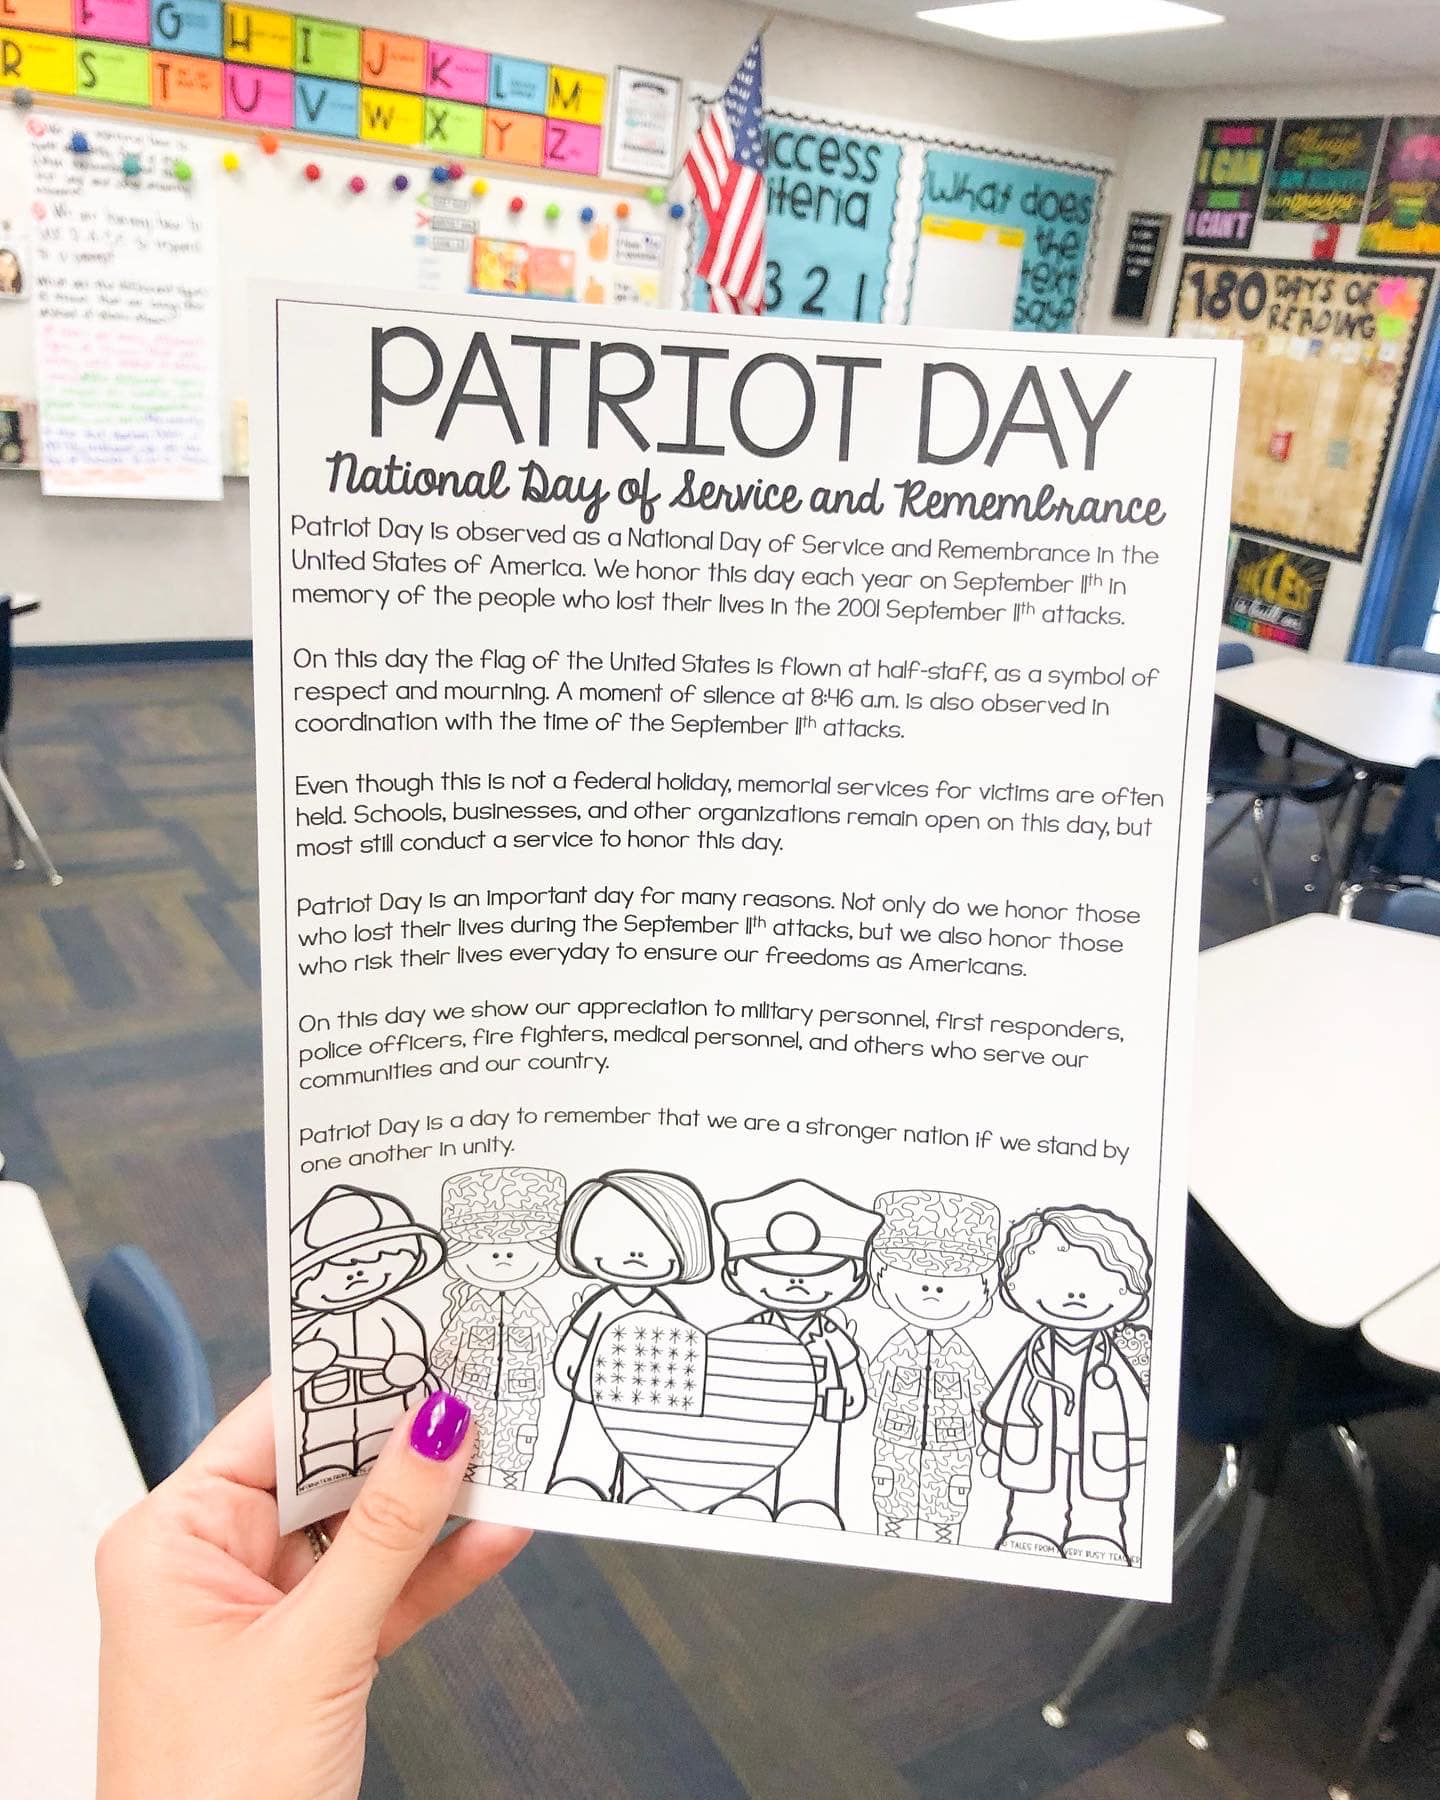 G H I J K L M
R S T U V W X Y Z
ccess
iteria
3 2 1
What does
the
text
say?
I CAN
I CAN'T
Always
180 DAYS OF
READING
SUCCESS
PATRIOT DAY
National Day of Service and Remembrance
Patriot Day is observed as a National Day of Service and Remembrance in the
United States of America. We honor this day each year on September 11th in
memory of the people who lost their lives in the 2001 September 11th attacks.
On this day the flag of the United States is flown at half-staff, as a symbol of
respect and mourning. A moment of silence at 8:46 a.m. is also observed in
coordination with the time of the September 11th attacks.
Even though this is not a federal holiday, memorial services for victims are often
held. Schools, businesses, and other organizations remain open on this day, but
most still conduct a service to honor this day.
Patriot Day is an important day for many reasons. Not only do we honor those
who lost their lives during the September 11th attacks, but we also honor those
who risk their lives everyday to ensure our freedoms as Americans.
On this day we show our appreciation to military personnel, first responders,
police officers, fire fighters, medical personnel, and others who serve our
communities and our country.
Patriot Day is a day to remember that we are a stronger nation if we stand by
one another in unity.
© TALES FROM A VERY BUSY TEACHER